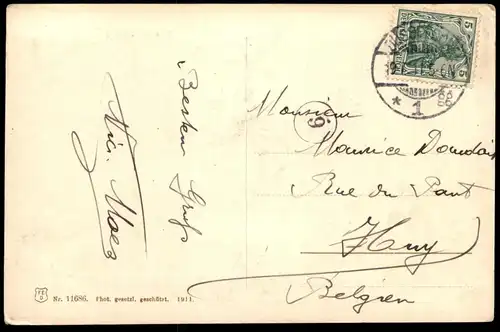 5
5
* 1
9
Monsieur
Maurice
Rue du Pont
Huy
Belgien
Besten Gruß
Nic. Maes
Nr. 11686. Phot. gesetzl. geschützt. 1911.